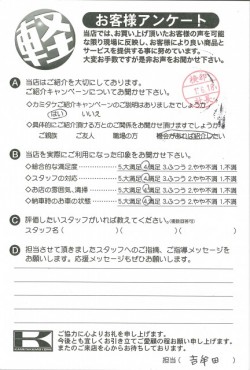 軽
お客様アンケート
当店では、お買い上げ頂いたお客様の声を可能
な限り現場に反映し、お客様により良い商品と
サービスを提供する事に努めています。
大変お手数ですが是非お声をお聞かせ下さい。
A 当店はご紹介を大切にしてあります。
ご紹介キャンペーンについてお聞かせ下さい。
◇カミタケご紹介キャンペーンのご説明はありましたでしょうか
はい いいえ
◇具体的にご紹介頂ける方とのご関係をお聞かせ頂けますでしょうか
ご親族 ご友人 職場の方 機会があれば紹介したい
B 当店を実際にご利用になった印象をお聞かせ下さい。
◇総合的な満足度 5.大満足 4.満足 3.ふつう 2.やや不満 1.不満
◇スタッフの対応 5.大満足 4.満足 3.ふつう 2.やや不満 1.不満
◇お店の雰囲気、清掃 5.大満足 4.満足 3.ふつう 2.やや不満 1.不満
◇納車時のお車の状態 5.大満足 4.満足 3.ふつう 2.やや不満 1.不満
C 評価したいスタッフがいれば教えてください。(複数回答可)
スタッフ名( )( )( )
D 担当させて頂きましたスタッフへのご指摘、ご指導メッセージを
お願いします。応援メッセージもぜひお願いします。
K
ご協力に心よりお礼を申し上げます。
今後とも宜しくお引き立てご愛顧の程お願い申し上げます。
またのご来店を心からお待ちしております。
担当( 吉牟田 )